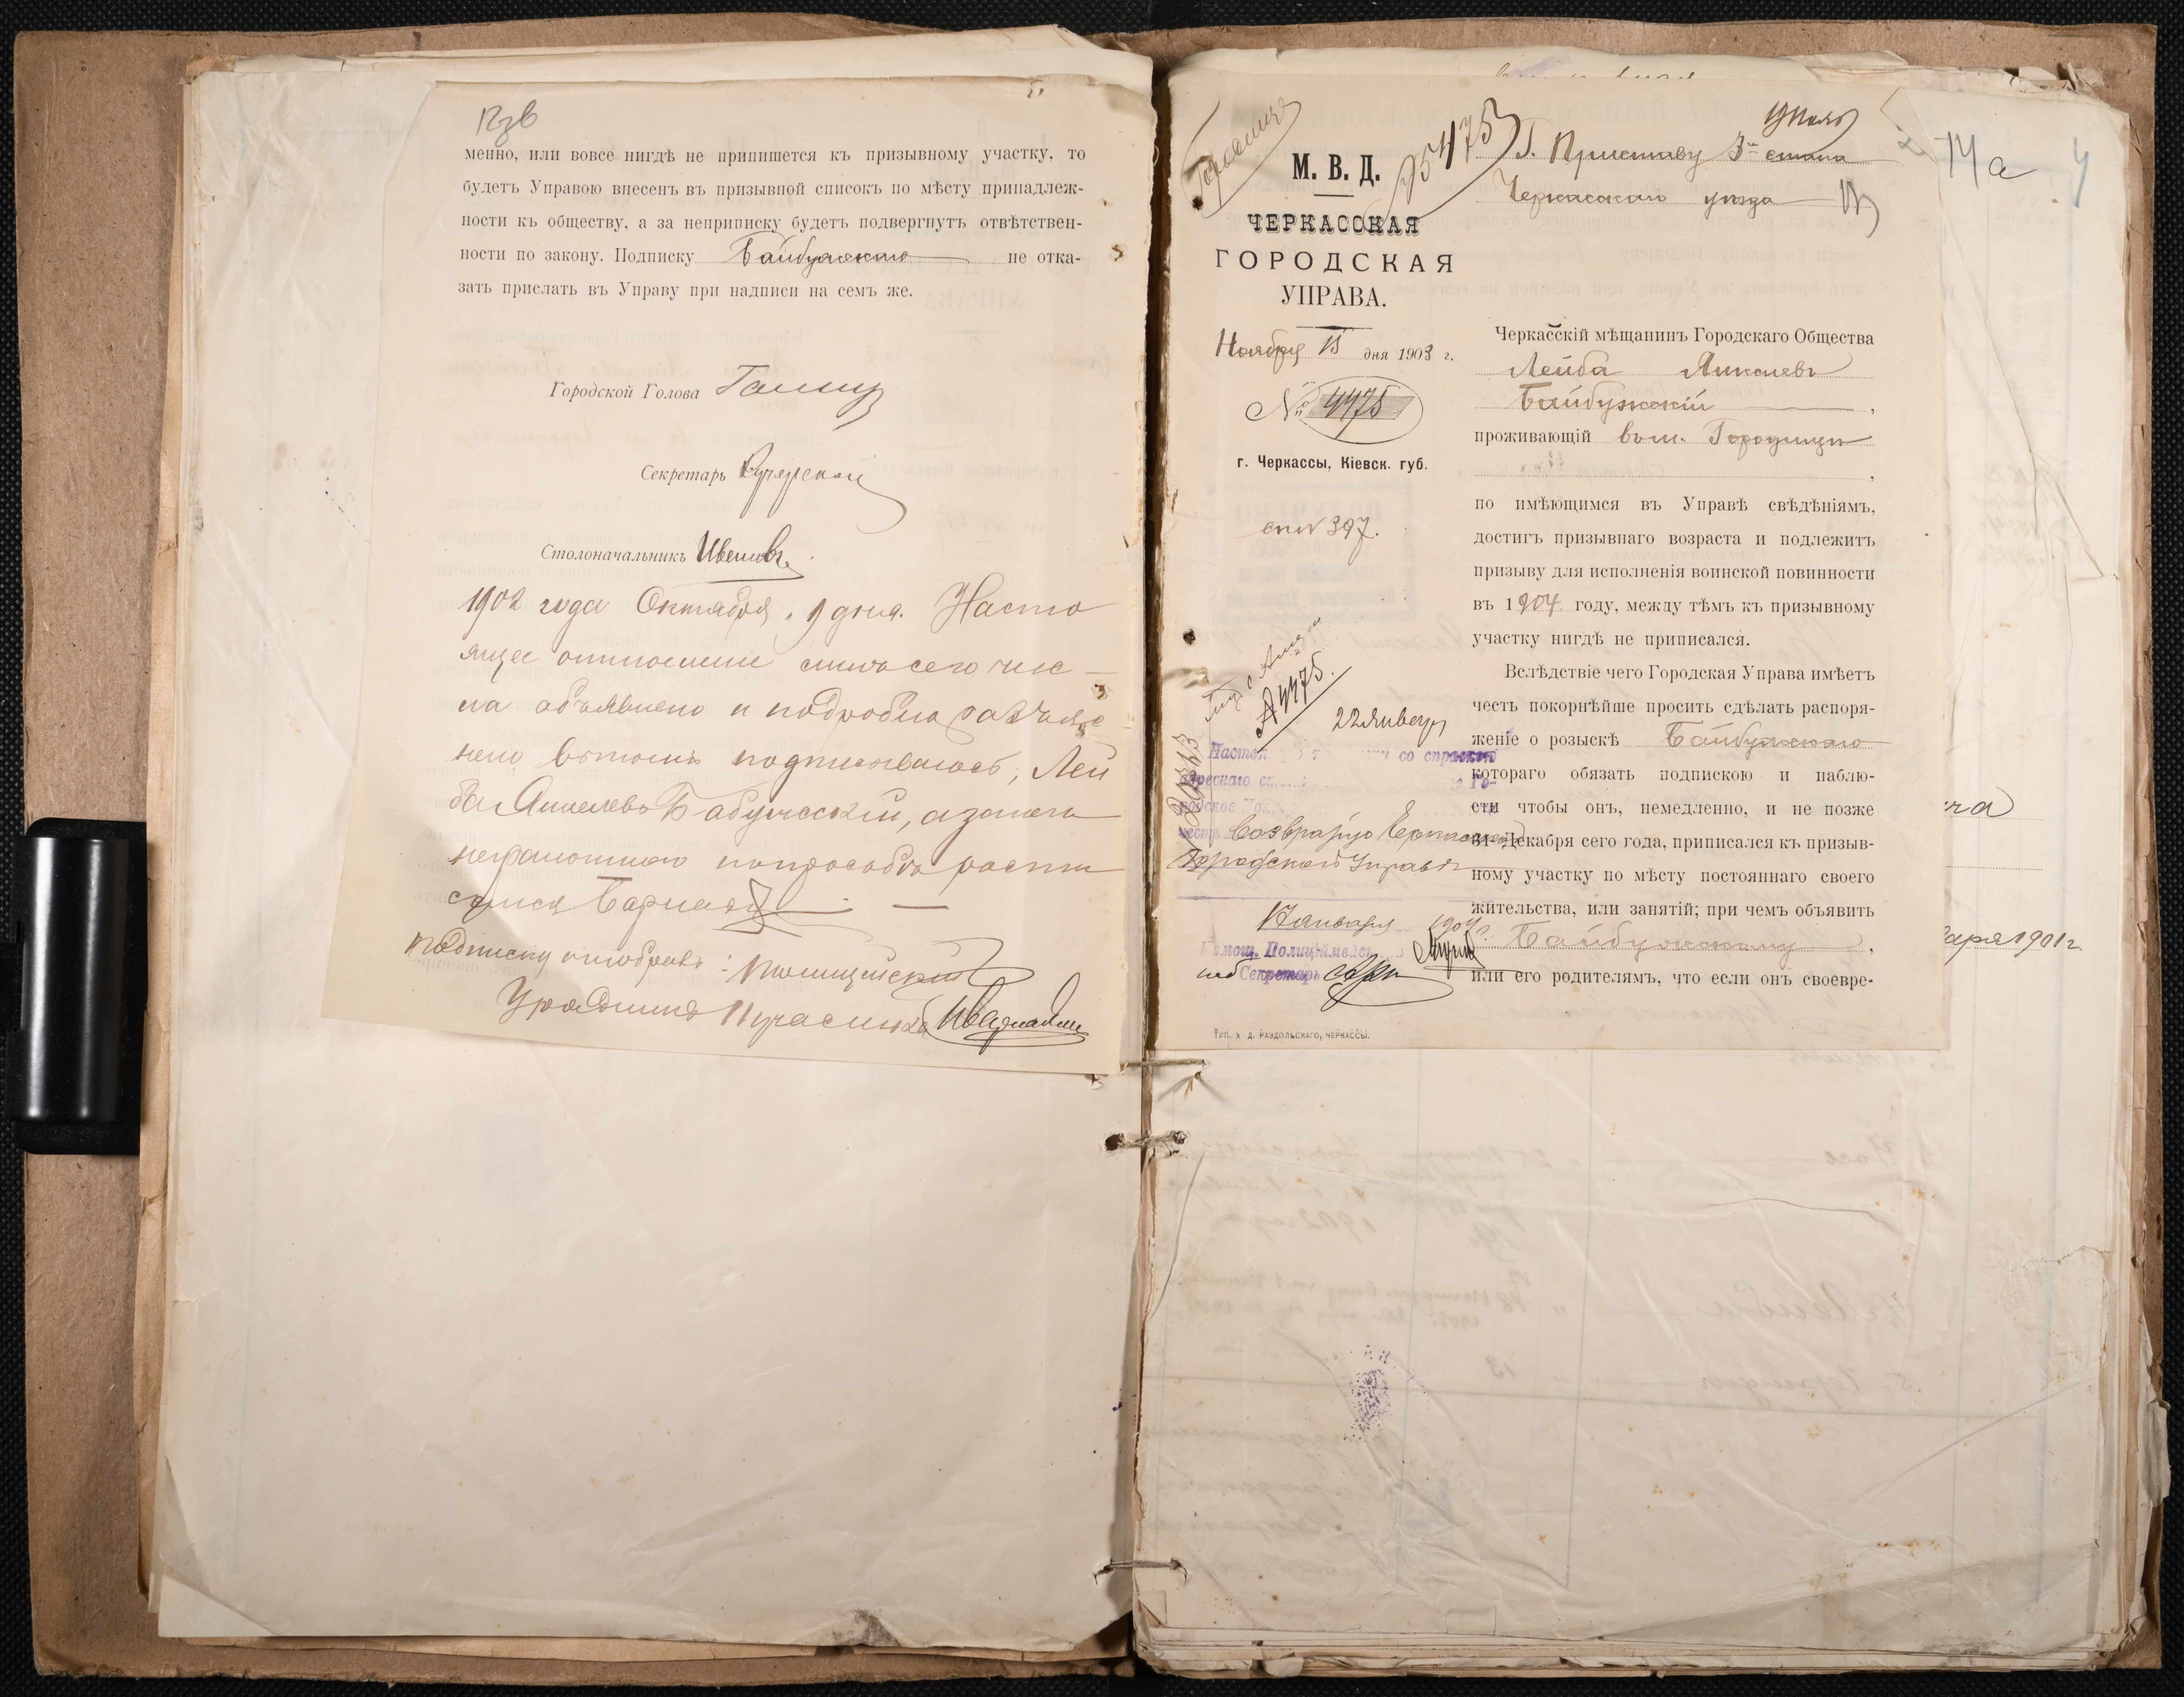 менно, или вовсе нигдѣ не припишется къ призывному участку, то
будетъ Управою внесенъ въ призывной списокъ по мѣсту принадлеж-
ности къ обществу, а за неприписку будетъ подвергнутъ отвѣтствен-
ности по закону. Подписку Байбужскаго не отка-
зать прислать въ Управу при надписи на семъ же.
Городской Голова
Секретарь
Столоначальникъ
1902 года Октября 9 дня. Насто
ящее отношеніе сего чис-
ла объявлено и подробно разъяс
нено въ томъ подписываюсь, Лей
ба Анкелевъ Бабужсскій, а за него
неграмотнаго по просьбѣ распи
сался
Подписку отобралъ: Полицейскій
Урядникъ
Г. Приставу 3го стана
Черкасскаго уѣзда
14а
4
М. В. Д.
ЧЕРКАССКАЯ
ГОРОДСКАЯ
УПРАВА.
Ноября 15 дня 1903 г.
№ 4475
г. Черкассы, Кіевск. губ.
сп № 397.
Черкасскій мѣщанинъ Городскаго Общества
Лейба Анкелевъ
Байбужскій,
проживающій въ м. Городищѣ
по имѣющимся въ Управѣ свѣдѣніямъ,
достигъ призывнаго возраста и подлежитъ
призыву для исполненія воинской повинности
въ 1904 году, между тѣмъ къ призывному
участку нигдѣ не приписался.
Вслѣдствіе чего Городская Управа имѣетъ
честь покорнѣйше просить сдѣлать распоря-
женіе о розыскѣ Байбужскаго
котораго обязать подпискою и наблю-
сти чтобы онъ, немедленно, и не позже
31-Декабря сего года, приписался къ призыв-
ному участку по мѣсту постояннаго своего
жительства, или занятій; при чемъ объявить
Байбужскому,
или его родителямъ, что если онъ своевре-
4475.
22 Января
со справкою
адреснаго
Возвращаю Черкасской
Городской Управѣ
Января 1904 г.
Помощ. Полицімейст
Секретарь
Тип. Х. Д. РАЗДОЛЬСКАГО, ЧЕРКАССЫ.
варя 1901 г.